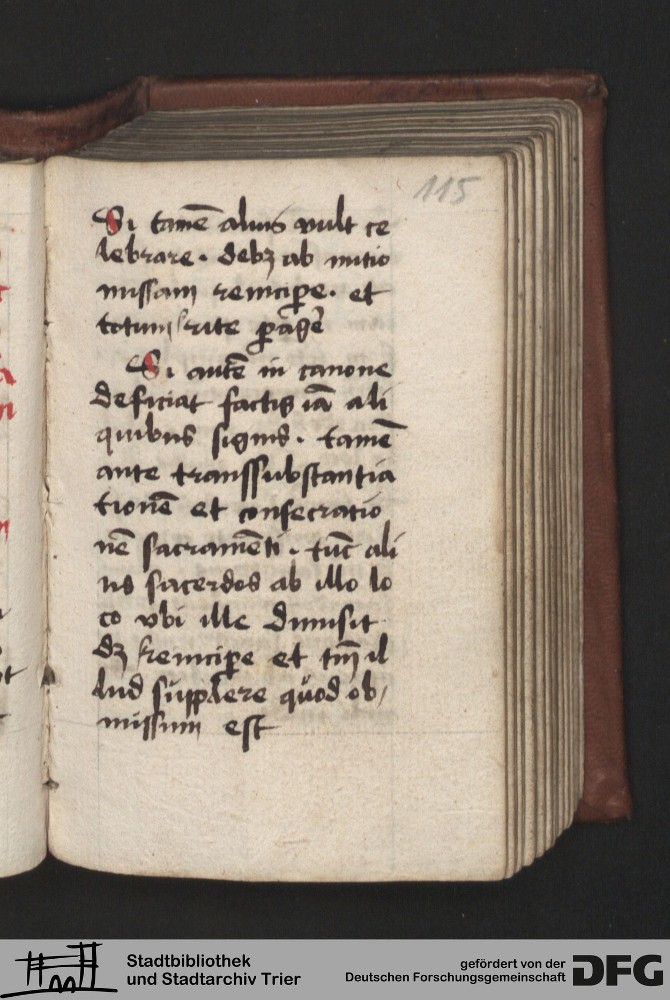 115
Si tamē alius vult ce
lebrare · debꝫ ab initio
missam reincipe̱ · et
totum rite ꝑag̃e
Si autē in canone
deficiat factis iā ali
quibus signis · tamē
ante transsubstantia
tionē et consecratio
nē sacramēti · tūc ali
us sacerdos ab illo lo
co vbi ille dimisit
dꝫ reinciꝑe et tm̄ il
lud supplere quod ob
missum est
Stadtbibliothek
und Stadtarchiv Trier
gefördert von der
Deutschen Forschungsgemeinschaft
DFG